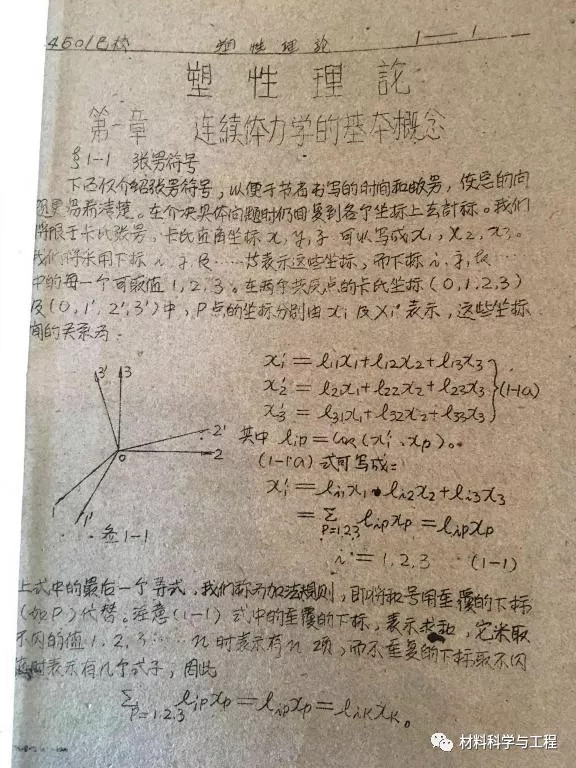 4501已校 塑性理论 1—1
塑性理論
第一章 连续体力学的基本概念
§1-1 张量符号
下面仅介绍张量符号，以便于节省书写的时间和
题显得清楚。在介决具体问题时仍回复到各个坐标上去計标。我们
将限于卡氏张量，卡氏直角坐标x,y,z可以写成x1,x2,x3。
我们将采用下标i,j,k……术表示这些坐标，而下标i,j,k…
中的每一个可取值1,2,3。在两个共原点的卡氏坐标(0,1,2,3)
及(0,1',2',3')中，P点的坐标分别由xi及xi'表示，这些坐标
间的关系为：
x1' = l11x1+l12x2+l13x3
x2' = l21x1+l22x2+l23x3 (1-1a)
x3' = l31x1+l32x2+l33x3
其中 lip=cos(xi'、xp)。
(1-1a)式可写成：
xi' = li1x1+li2x2+li3x3
= Σ p=1,2,3 lipxp = lipxp
i = 1,2,3 (1-1)
3' 3
2'
0 2
1 1'
图1-1
上式中的最后一个等式，我们称为加法规则，即将和号用重覆的下标
(如P)代替。注意(1-1)式中的重覆的下标，表示求和，它采取
不同的值1,2,3…… n时表示有n项，而不重复的下标取不同
值时表示有几个式子，因此
Σ p=1,2,3 lipxp = lipxp = likxk。
材料科学与工程